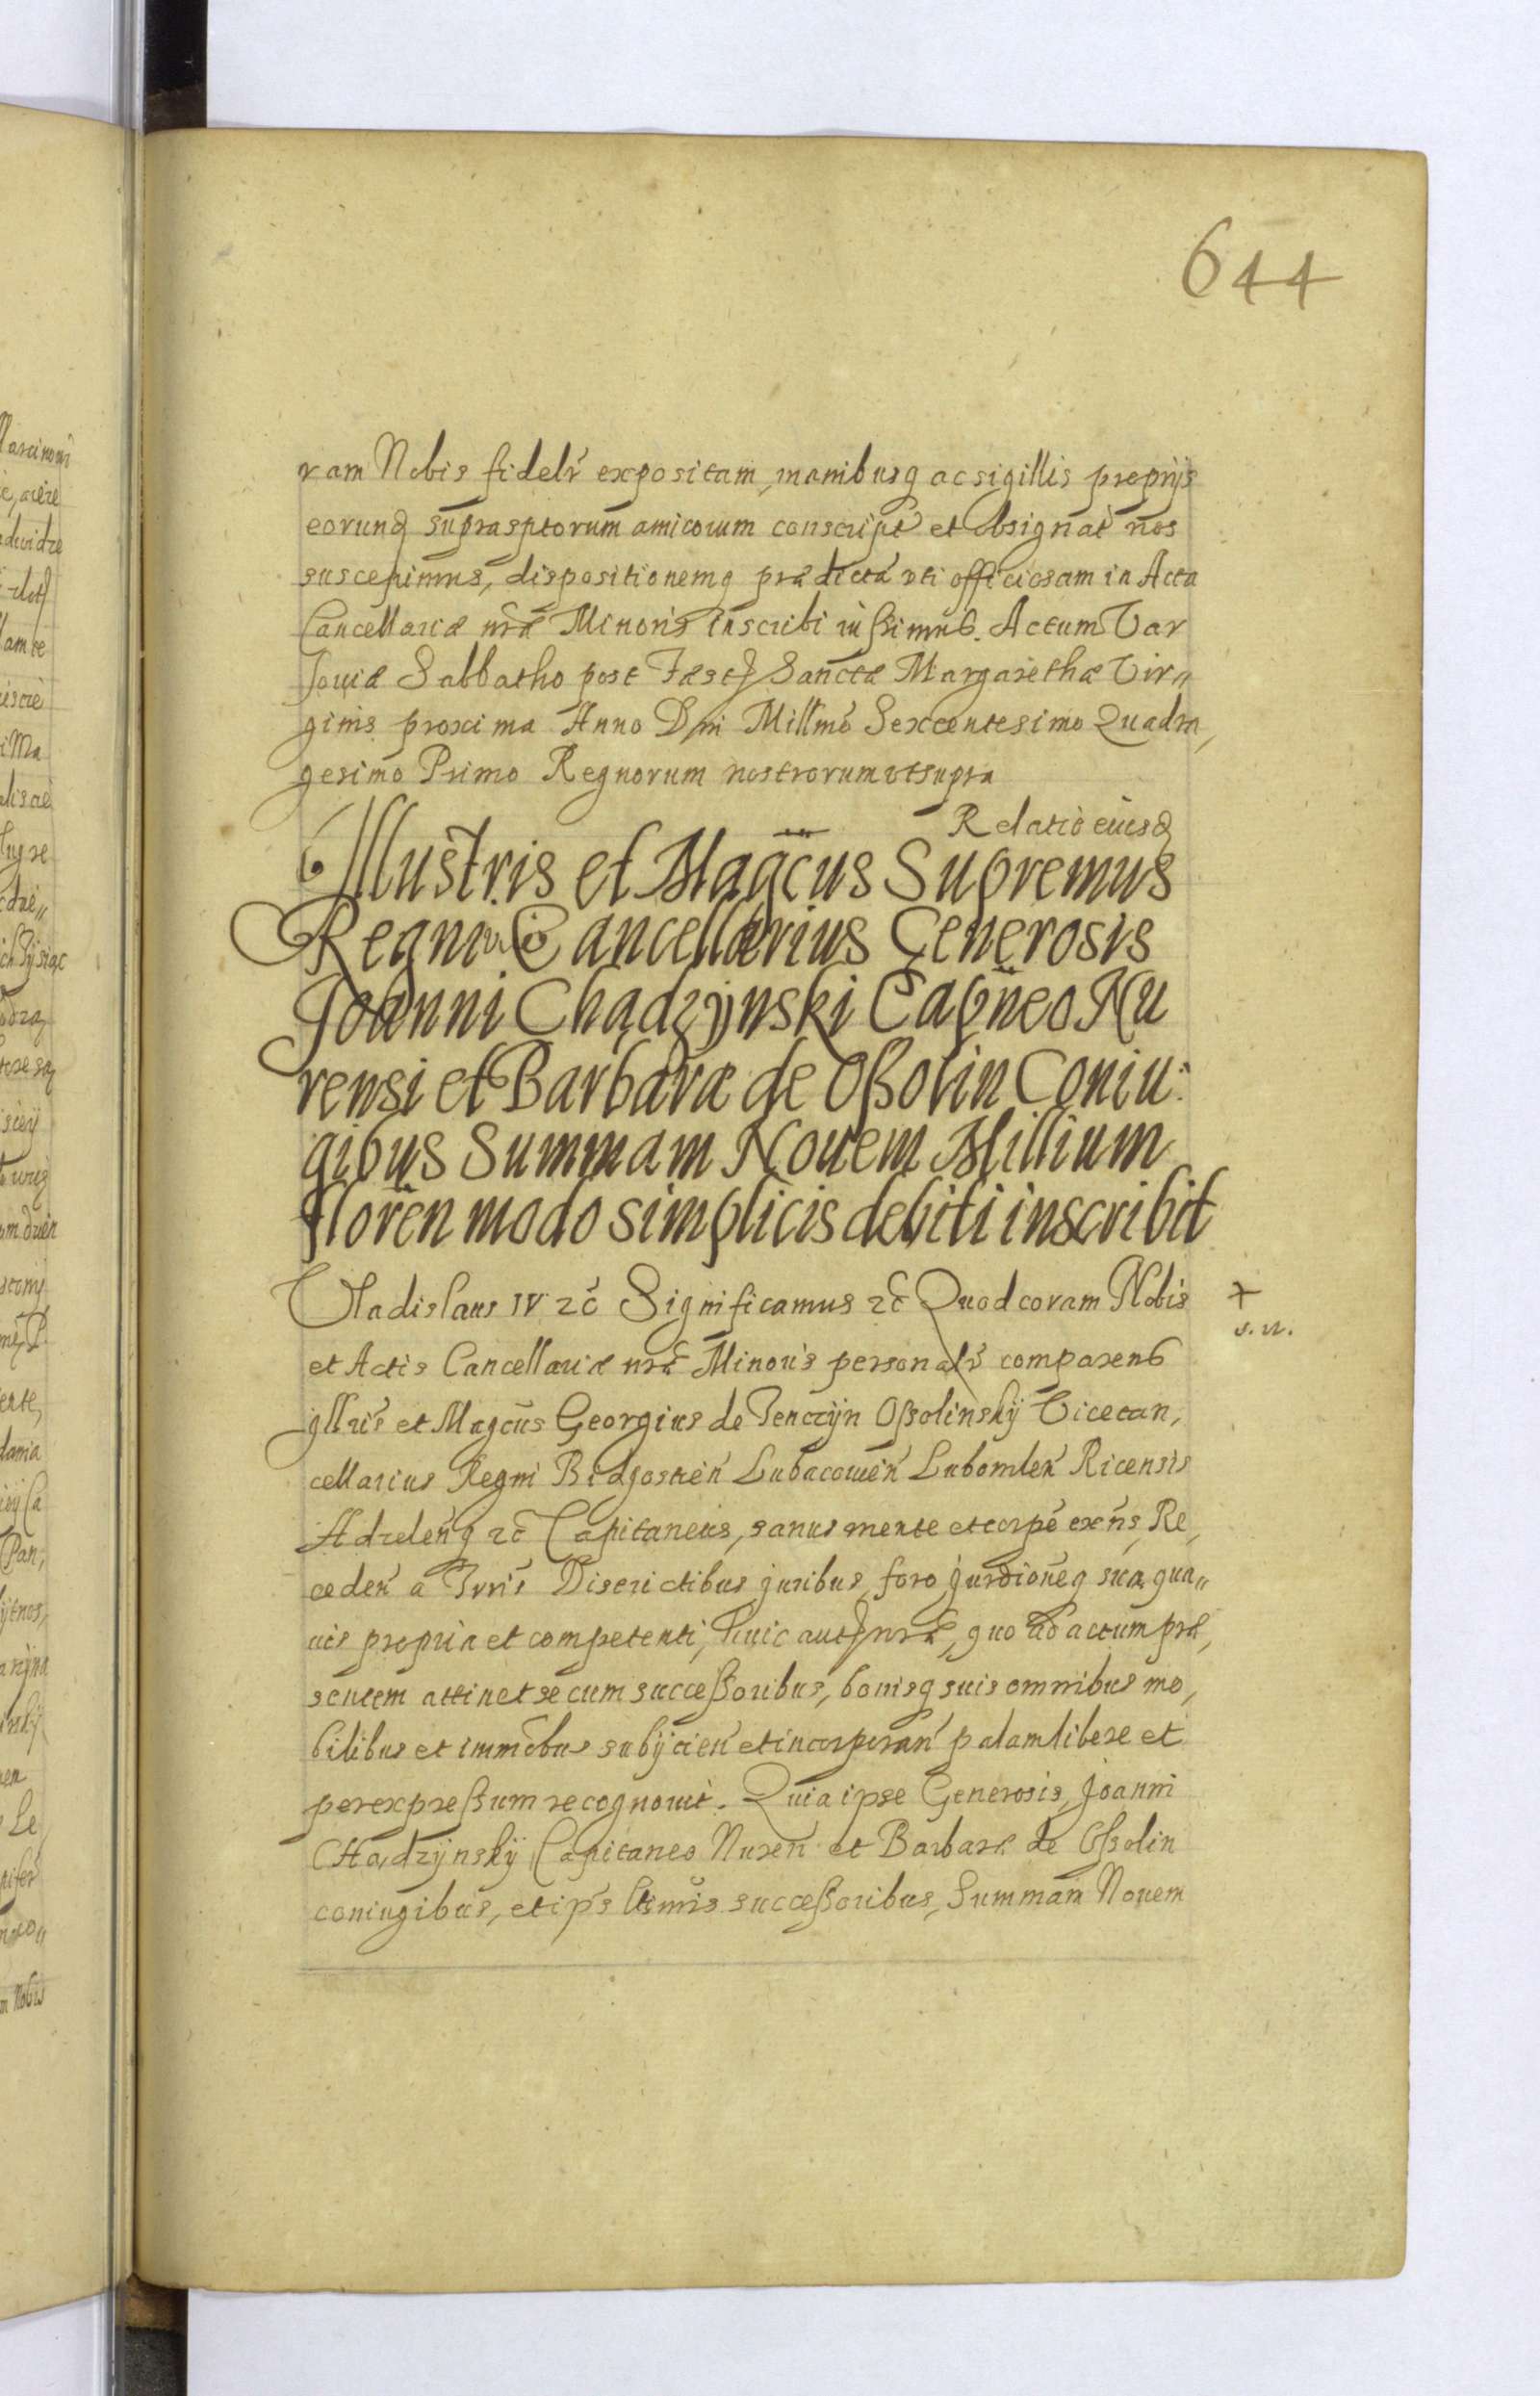 644
ram Nobis fidelr expositam, manibusq ac sigillis proprijs
eorund suprasptorum amicorum conscript et obsignat nos
suscepimus, dispositionemq prædictã vti officiosam in Acta
Cancellariæ nræ Minoris inscribi iußimus. Actum Var
souiæ Sabbatho post Fest Sanctæ Margarethæ Vir„
ginis proxima Anno Dni Millmo Sexcentesimo Quadra,
gesimo Primo Regnorum nostrorum vtsupra
Relatio eiusd
Illustris et Magcus Supremus
Regni Cancellarius Generosis
Joanni Chądzynski Capneo Nu
rensi et Barbaræ de Oßolin Coniu:
gibus Summam Nouem Millium
floren modo simplicis debiti inscribit
Vladislaus IV zc Significamus zc Quod coram Nobis
x
s. n.
et Actis Cancellariæ nræ Minoris personalr comparens
jllris et Magcus Georgius de Tenczyn Oßolinskij Vicecan,
cellarius Regni Bidgostien Lubacouien Lubomlen Ricensis
Adzelenq zc Capitaneus, sanus mente et corpe exns, Re,
ceden a Trris Districtibus juribus, foro jurdioneq sua qua„
uis propria et competenti, huic aut nræ, quo ad actum præ,
sentem attinet se cum succeßoribus, bonisq suis omnibus mo,
bilibus et immobus subijcien et incorporan palam libere et
per expreßum recognouit. Quia ipse Generosis, Joanni
Chądzynskij Capitaneo Nuren et Barbaræ de Oßolin
coniugibus, et ips ltimis succeßoribus, Summam Nouem